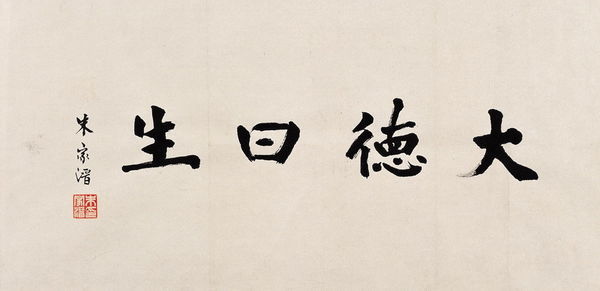 大德曰生
朱家溍